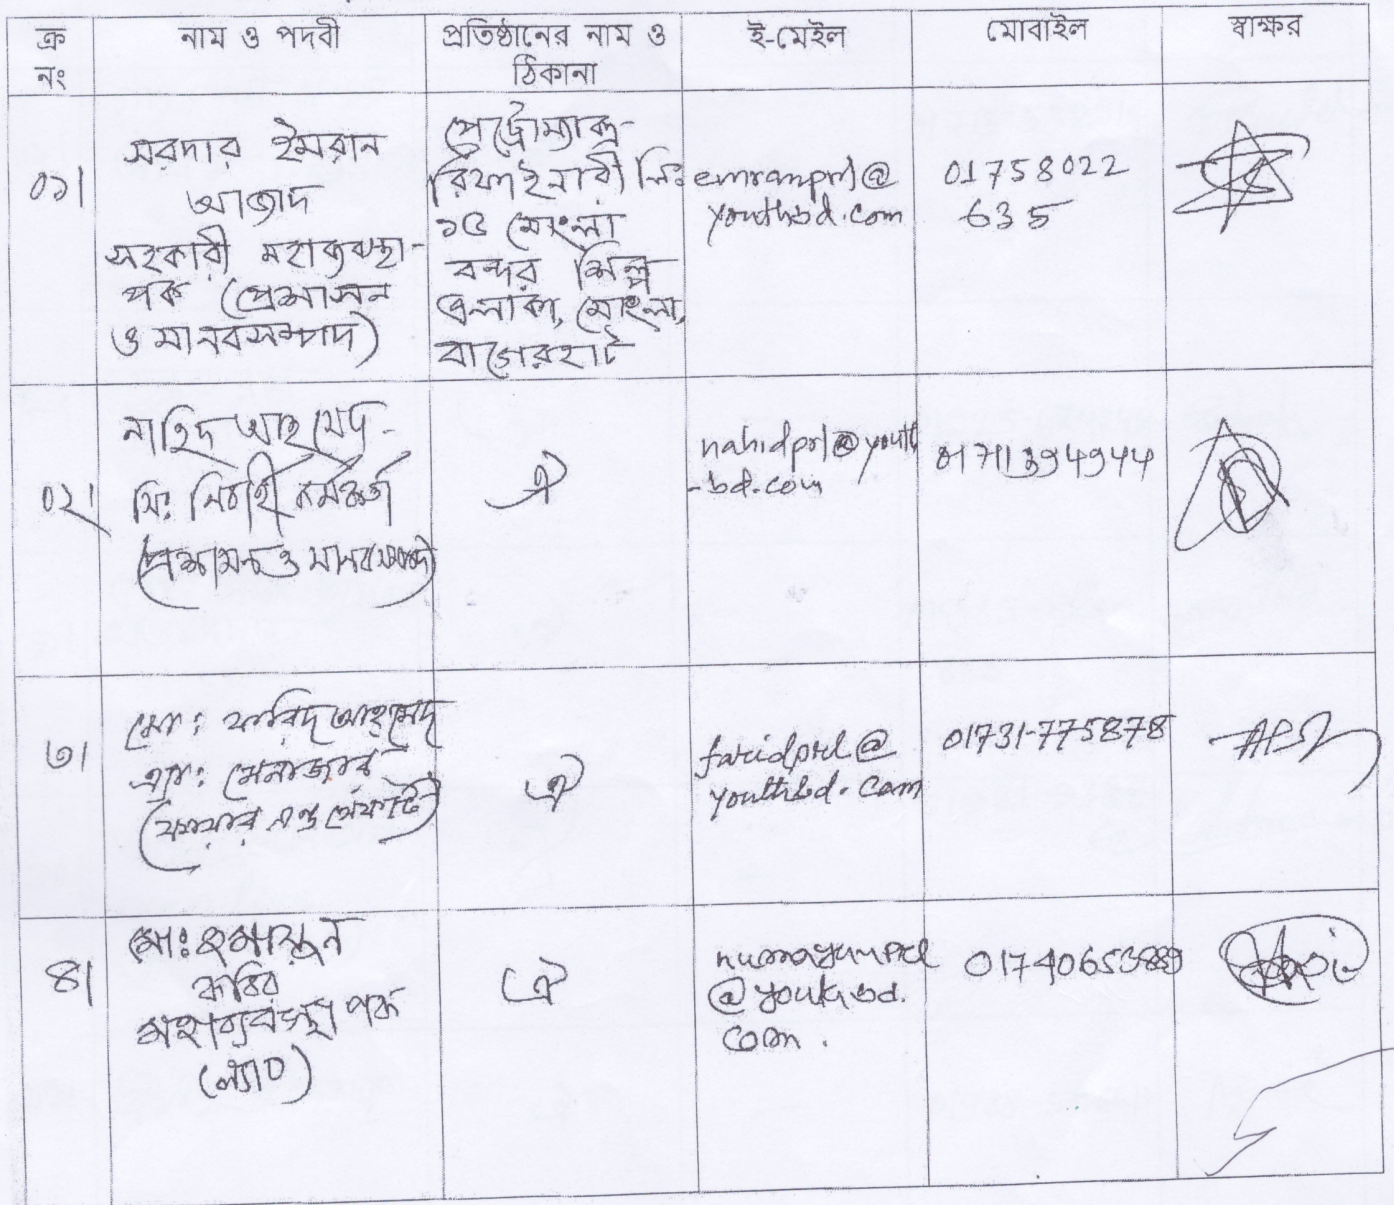 ক্র নং
নাম ও পদবী
প্রতিষ্ঠানের নাম ও ঠিকানা
ই-মেইল
মোবাইল
স্বাক্ষর
০১।
সরদার ইমরান
আজাদ
সহকারী মহাব্যবস্থা-
পক (প্রশাসন
ও মানবসম্পদ)
পেট্রোম্যাক্স-
রিফাইনারী লিঃ
১৫ মোংলা
বন্দর শিল্প
এলাকা, মোংলা,
বাগেরহাট
emranprl@
youthbd.com
01758022
635
০২।
নাহিদ আহমেদ-
সিঃ নির্বাহী কর্মকর্তা
(প্রশাসন ও মানবসম্পদ)
ঐ
nahidprl@youth
-bd.com
01711394944
৩।
মোঃ ফরিদ আহমেদ
এ্যাঃ মেনেজার
(ফায়ার এন্ড সেফটি)
ঐ
faridprl@
youthbd.com
01731-775878
৪।
মোঃ হুমায়ুন
কবির
মহাব্যবস্থাপক
(ল্যাব)
ঐ
humayunprl
@youthbd.
com.